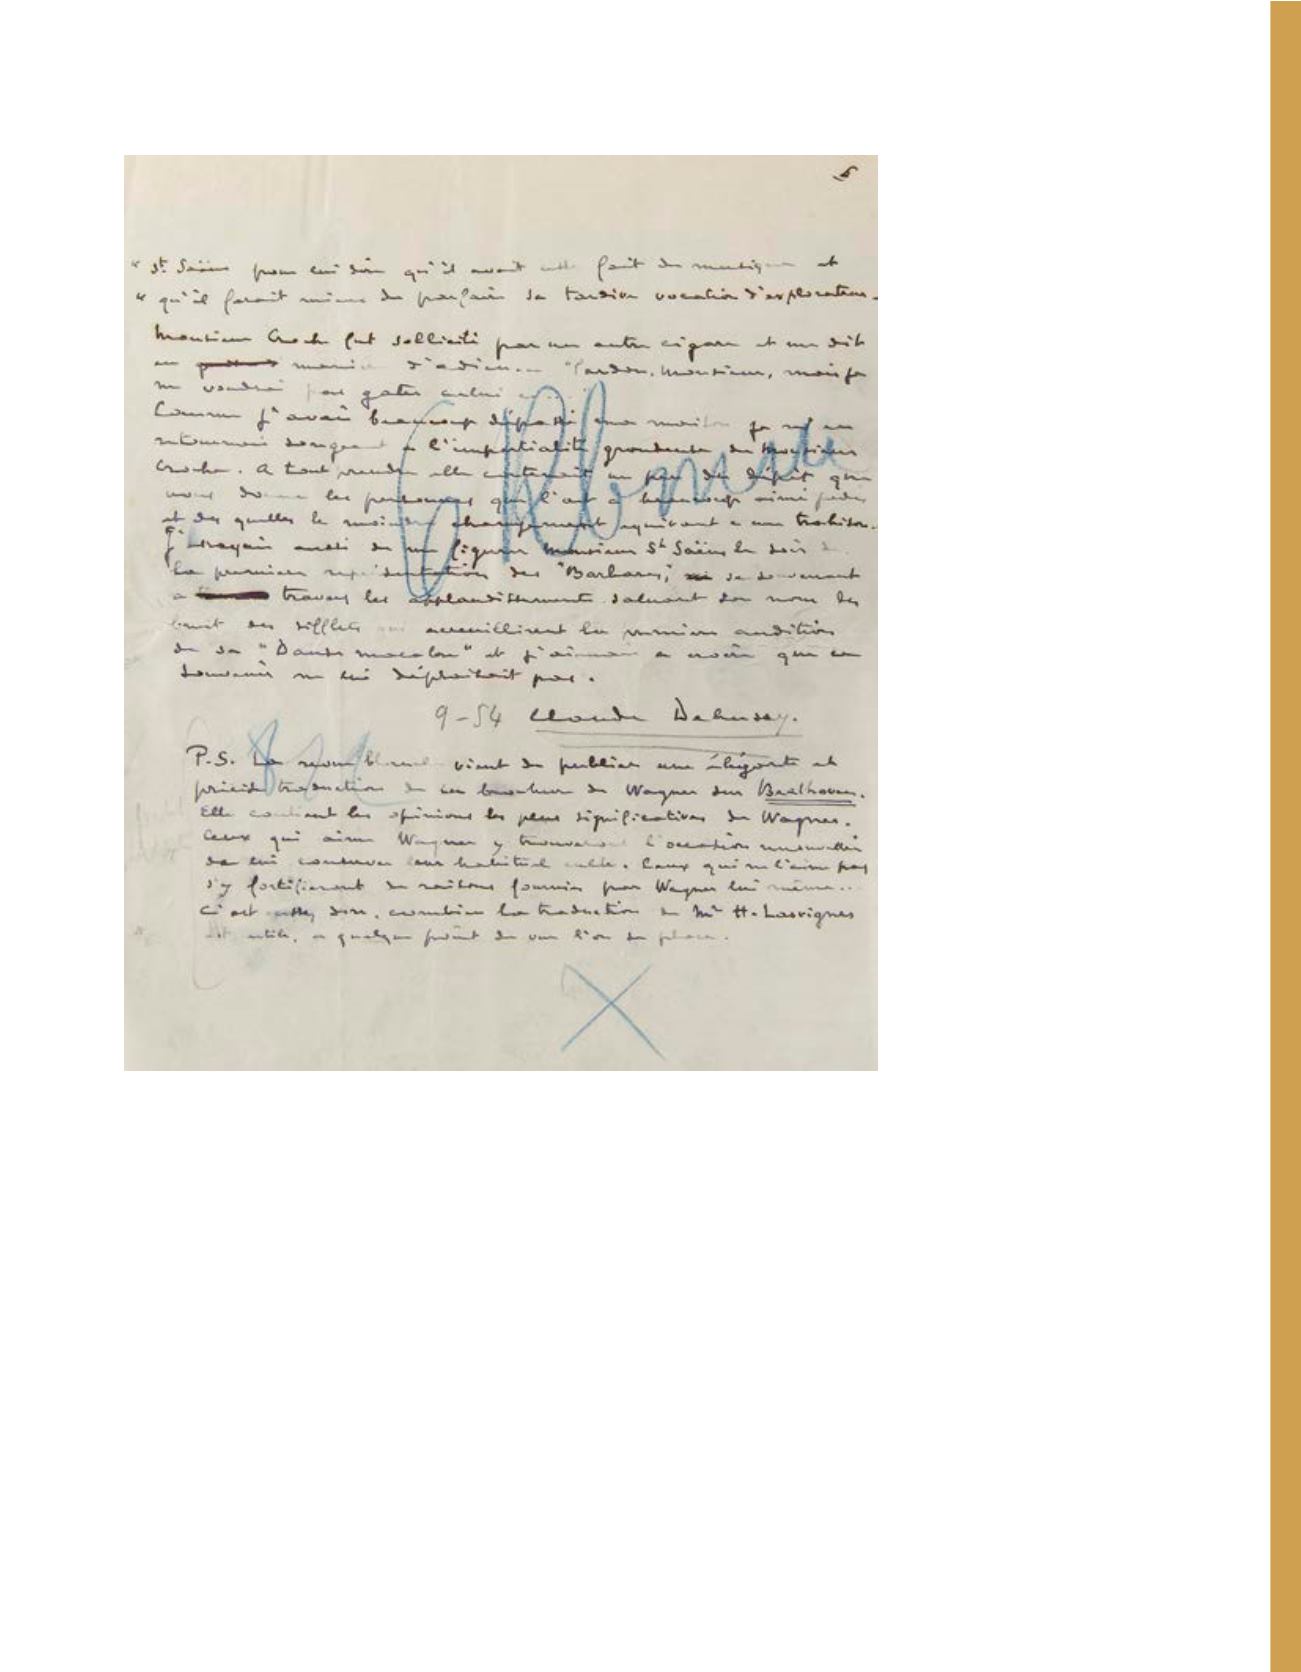 5
" St. Saëns pour lui dire qu'il avait fait de la musique et
" qu'il ferait mieux de parfaire sa tardive vocation d'explorateur.
Monsieur Croche fut sollicité par un autre cigare et me dit
en manière d'adieu... "Pardon, Monsieur, mais je
ne voudrai pas gater celui ci...
Comme j'avais beaucoup dépassé ma maison je m'en
retournai songeant a l'impartialité grondeuse de Monsieur
Croche. A tout prendre elle contenait un peu du dépit que
nous donne les personnes que l'on a beaucoup aimé jadis
et des quelles le moindre changement équivaut a une trahison.
J' essayais aussi de me figurer Monsieur St Saëns le soir de
la première représentation des "Barbares", se souvenant
a travers les applaudissements saluant son nom du
bruit des sifflets qui accueillirent la première audition
de sa "Danse macabre" et j'aimais a croire que ce
souvenir ne lui déplaisait pas.
9-54 Claude Debussy.
P.S. La revue blanche vient de publier une élégante et
précise traduction de la brochure de Wagner sur Beethoven.
Elle contient les opinions les plus significatives de Wagner.
Ceux qui aime Wagner y trouveront l'occasion renouvellée
de lui continuer leur habituel culte. Ceux qui ne l'aime pas
s'y fortifieront de raisons fournies par Wagner lui même...
C'est dire, combien la traduction de Mr H. Lasvignes
est utile, a quelque point de vue l'on se place.